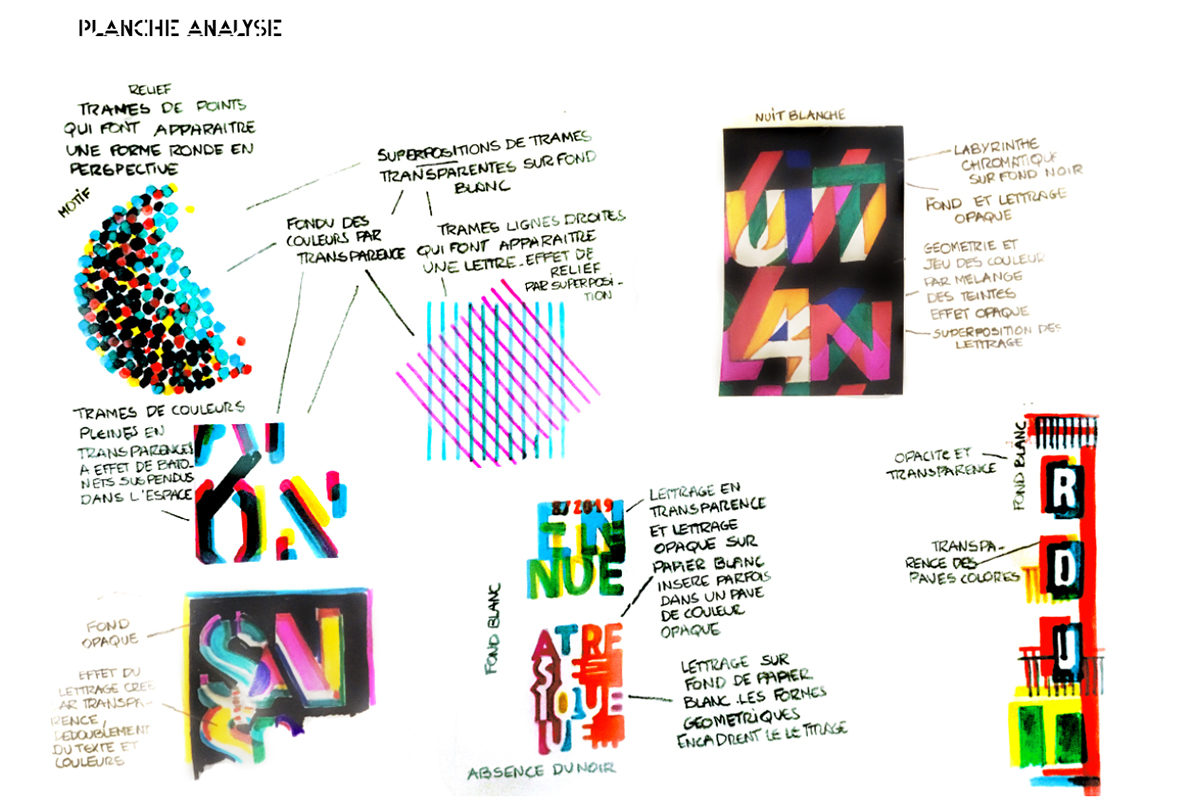 PLANCHE ANALYSE
RELIEF
TRAMES DE POINTS
QUI FONT APPARAITRE
UNE FORME RONDE EN
PERSPECTIVE
MOTIF
SUPERPOSITIONS DE TRAMES
TRANSPARENTES SUR FOND
BLANC
FONDU DES
COULEURS PAR
TRANSPARENCE
TRAMES LIGNES DROITES
QUI FONT APPARAITRE
UNE LETTRE. EFFET DE
RELIEF
PAR SUPERPOSI-
TION
NUIT BLANCHE
UIT
LAN
LABYRINTHE
CHROMATIQUE
SUR FOND NOIR
FOND ET LETTRAGE
OPAQUE
GEOMETRIE ET
JEU DES COULEUR
PAR MELANGE
DES TEINTES
EFFET OPAQUE
SUPERPOSITION DES
LETTRAGE
TRAMES DE COULEURS
PLEINES EN
TRANSPARENCES
A EFFET DE BATO-
NETS SUSPENDUS
DANS L'ESPACE
ON
FOND
OPAQUE
EFFET DU
LETTRAGE CREE
AR TRANSPA-
RENCE,
DEDOUBLEMENT
DU TEXTE ET
COULEURS
SN
FOND BLANC
8/2019
EN
NUE
ATRE
AST
IQUE
U
ABSENCE DU NOIR
LETTRAGE EN
TRANSPARENCE
ET LETTRAGE
OPAQUE SUR
PAPIER BLANC
INSERE PARFOIS
DANS UN PAVE
DE COULEUR
OPAQUE
LETTRAGE SUR
FOND DE PAPIER
BLANC. LES FORMES
GEOMETRIQUES
ENCADRENT LE LETTRAGE
OPACITE ET
TRANSPARENCE
FOND BLANC
TRANSPA-
RENCE DES
PAVES COLORES
R
D
U